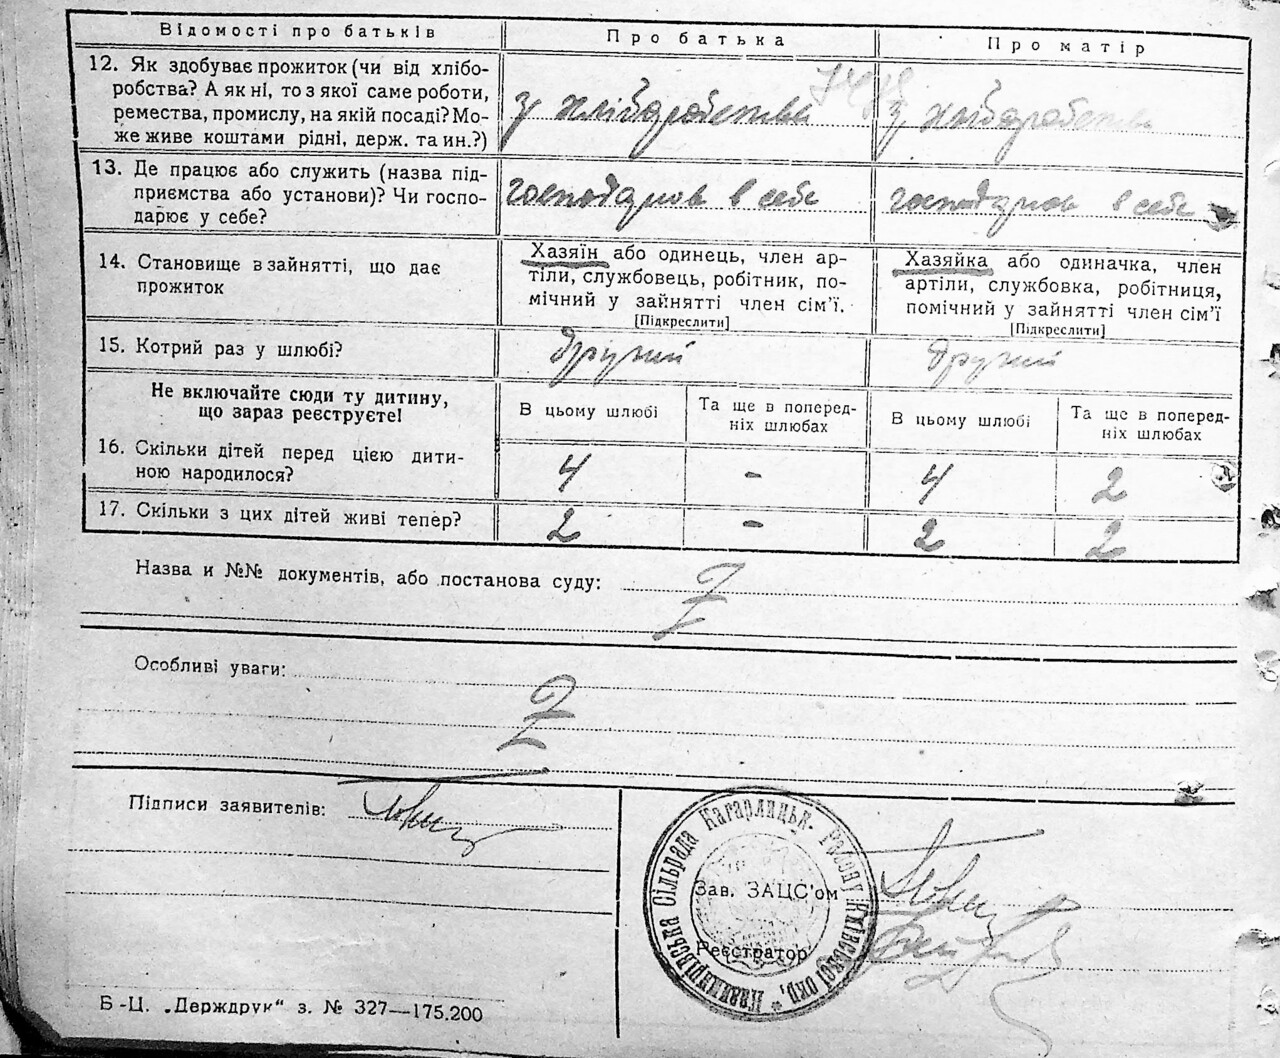 Відомості про батьків
Про батька
Про матір
12. Як здобуває прожиток (чи від хлібо-
робства? А як ні, то з якої саме роботи,
ремества, промислу, на якій посаді? Мо-
же живе коштами рідні, держ. та ин.?)
з хліборобства
з хліборобства
13. Де працює або служить (назва під-
приємства або установи)? Чи госпо-
дарює у себе?
господарює в себе
господарює в себе
14. Становище в зайнятті, що дає
прожиток
Хазяїн або одинець, член ар-
тіли, службовець, робітник, по-
мічний у зайнятті член сім'ї.
[Підкреслити]
Хазяйка або одиначка, член
артіли, службовка, робітниця,
помічний у зайнятті член сім'ї
[Підкреслити]
15. Котрий раз у шлюбі?
другий
другий
Не включайте сюди ту дитину,
що зараз реєструєте!
В цьому шлюбі
Та ще в поперед-
ніх шлюбах
В цьому шлюбі
Та ще в поперед-
ніх шлюбах
16. Скільки дітей перед цією дити-
ною народилося?
4
-
4
2
17. Скільки з цих дітей живі тепер?
2
-
2
2
Назва и №№ документів, або постанова суду:
Особливі уваги:
Підписи заявителів:
Сільрада Кагарлицьк. Району Київської окр.
Зав. ЗАЦС'ом
Реєстратор
Б-Ц. „Держдрук“ з. № 327—175.200